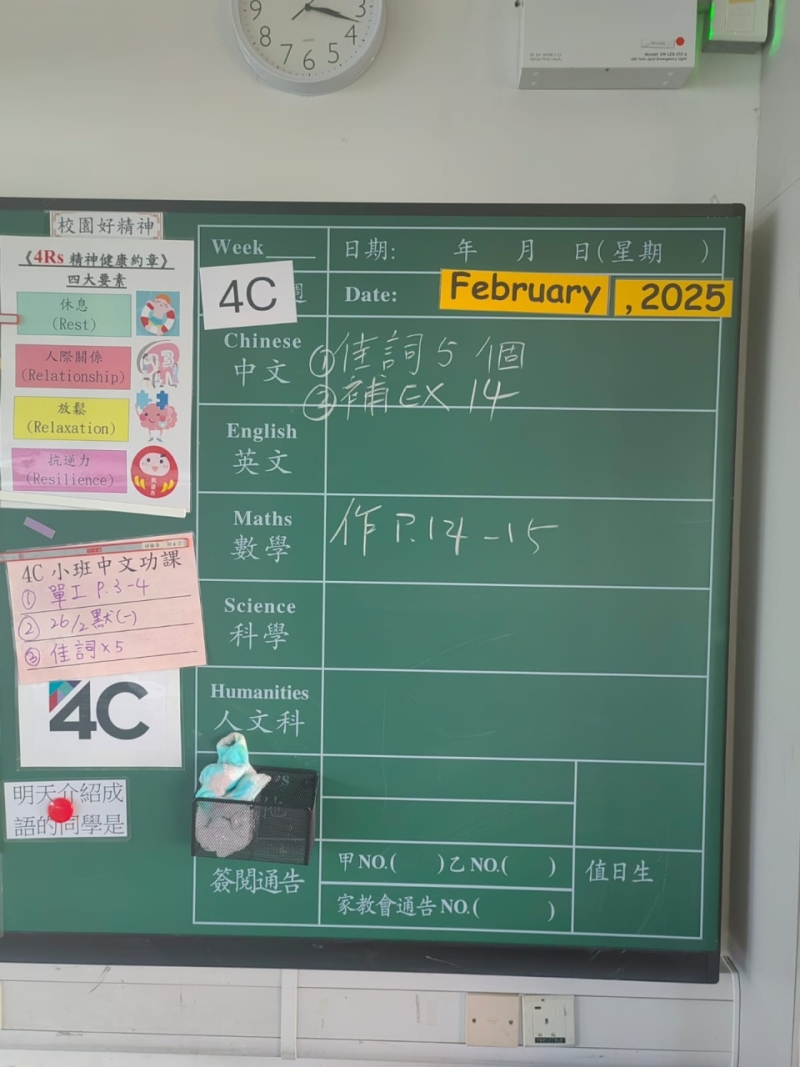 9 3
8 7 6 5 4
校園好精神
《4Rs 精神健康約章》
四大要素
休息
(Rest)
人際關係
(Relationship)
放鬆
(Relaxation)
抗逆力
(Resilience)
4C 小班中文功課
① 單工 P.3-4
② 26/2 默(一)
③ 佳詞×5
4C
明天介紹成
語的同學是
Week____ 日期: 年 月 日(星期 )
4C 週 Date: February , 2025
Chinese
中文
①佳詞5個
②補EX 14
English
英文
Maths
數學
作P.14-15
Science
科學
Humanities
人文科
他
簽閱通告
甲NO.( )乙NO.( )
家教會通告NO.( )
值日生